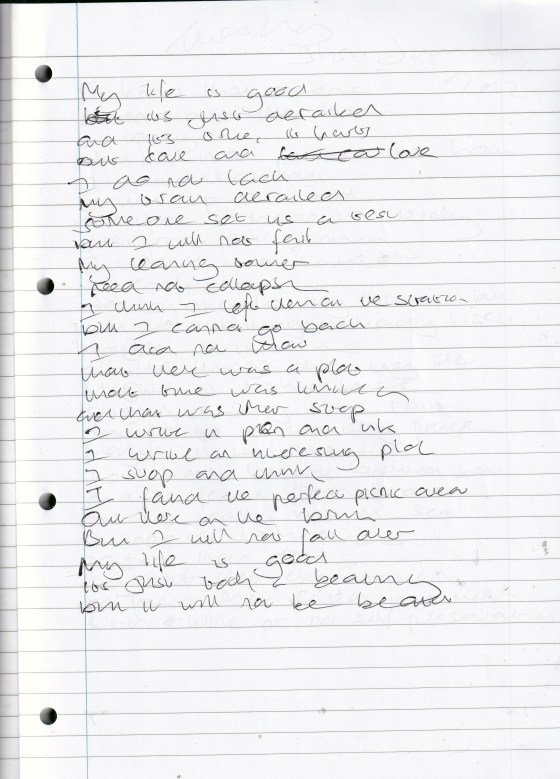 My life is good
its just derailed
and its true, it hurts
but care and love
I do not lack
My brain derailed
Someone set us a test
but I will not fail
My leaning tower
Need not collapse
I think I left them at the station
but I cannot go back
I did not know
that there was a plot
that time was limited
and that was their stop
I write in pen and ink
I write an interesting plot
I stop and think
I found the perfect picnic area
Out there on the brink
But I will not fall over
My life is good
its just took a beating
but it will not be beaten